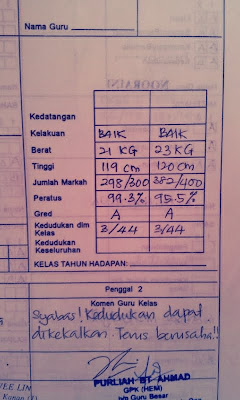 Nama Guru
Kedatangan
Kelakuan BAIK BAIK
Berat 21 KG 23 KG
Tinggi 119 cm 120 cm
Jumlah Markah 298/300 382/400
Peratus 99.3% 95.5%
Gred A A
Kedudukan dlm Kelas 3/44 3/44
Kedudukan Keseluruhan
KELAS TAHUN HADAPAN:
Penggal 2
Komen Guru Kelas
Syabas! Kedudukan dapat
dikekalkan. Terus berusaha!!
PURLIAH BT AHMAD
GPK (HEM)
b/p Guru Besar